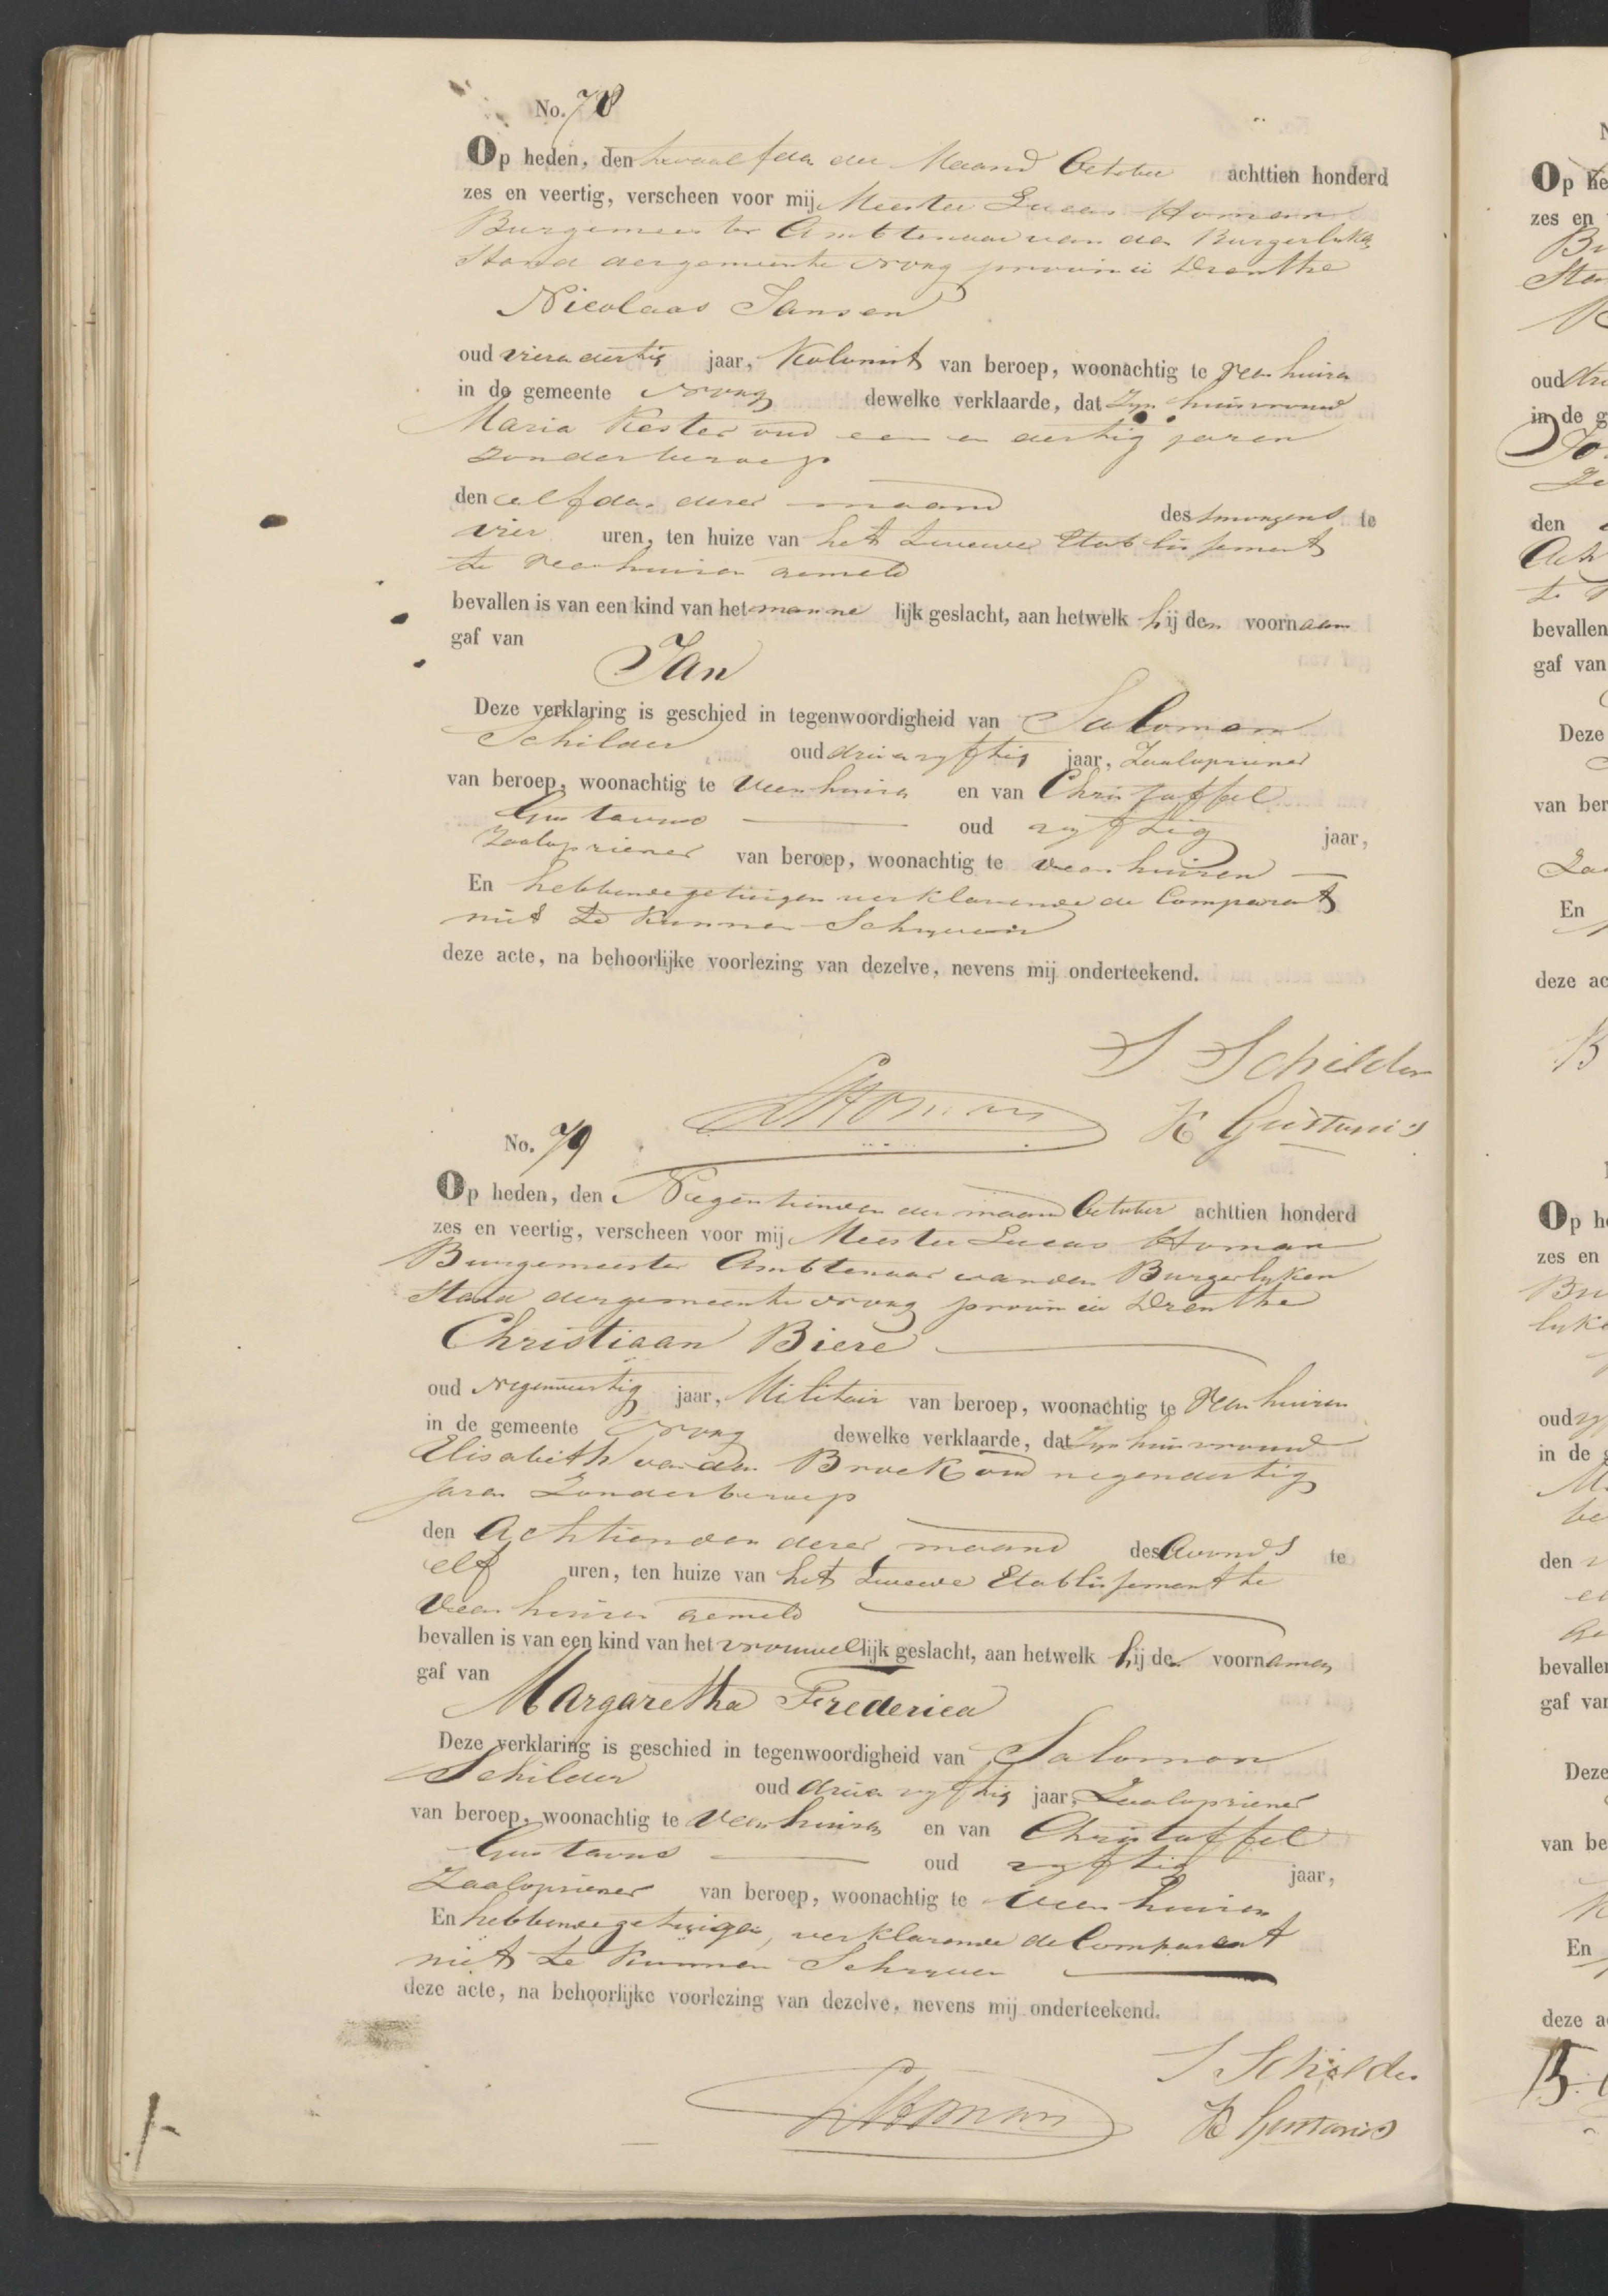 No. 78
Op heden, den twaalfden der Maand October achttien honderd
zes en veertig, verscheen voor mij Meester Lucas Homan
Burgemeester Ambtenaar van den Burgerlyken
Stand der gemeente Norg provincie Drenthe
Nicolaas Jansen
oud vierendertig jaar, Kolonist van beroep, woonachtig te Veenhuizen
in de gemeente Norg dewelke verklaarde, dat zyn huisvrouw
Maria Kester oud een en dertig jaren
zonder beroep
den elfden dezer maand des smorgens te
vier uren, ten huize van het tweede Etablissement
te Veenhuizen gemeld
bevallen is van een kind van het mannelijk geslacht, aan hetwelk hij den voornaam
gaf van
Jan
Deze verklaring is geschied in tegenwoordigheid van Salomon
Schilder oud drieenvyftig jaar, Zaalopziener
van beroep, woonachtig te Veenhuizen en van Christoffel
Gustavus oud vyftig jaar,
Zaalopziener van beroep, woonachtig te Veenhuizen
En hebbende getuigen verklarende de Comparant
niet te kunnen Schryven
deze acte, na behoorlijke voorlezing van dezelve, nevens mij onderteekend.
S Schilder
LHoman
K Gustavus
No. 79
Op heden, den Negentienden der maand October achttien honderd
zes en veertig, verscheen voor mij Meester Lucas Homan
Burgemeester Ambtenaar van den Burgerlyken
Stand der gemeente Norg provincie Drenthe
Christiaan Biere
oud jaar, Militair van beroep, woonachtig te Veenhuizen
in de gemeente Norg dewelke verklaarde, dat zyn huisvrouw
Elisabeth van den Broek oud negendertig
jaren Zonder beroep
den Achtienden dezer maand des Avonds te
elf uren, ten huize van het tweede Etablissement te
Veenhuizen gemeld
bevallen is van een kind van het vrouwelijk geslacht, aan hetwelk hij de voornamen
gaf van
Margaretha Frederica
Deze verklaring is geschied in tegenwoordigheid van Salomon
Schilder oud drieenvyftig jaar, Zaalopziener
van beroep, woonachtig te Veenhuizen en van Christoffel
Gustavus oud vyftig jaar,
Zaalopziener van beroep, woonachtig te Veenhuizen
En hebbende getuigen, verklarende de Comparant
niet te kunnen Schryven
deze acte, na behoorlijke voorlezing van dezelve, nevens mij onderteekend.
S Schilder
LHoman
K Gustavus